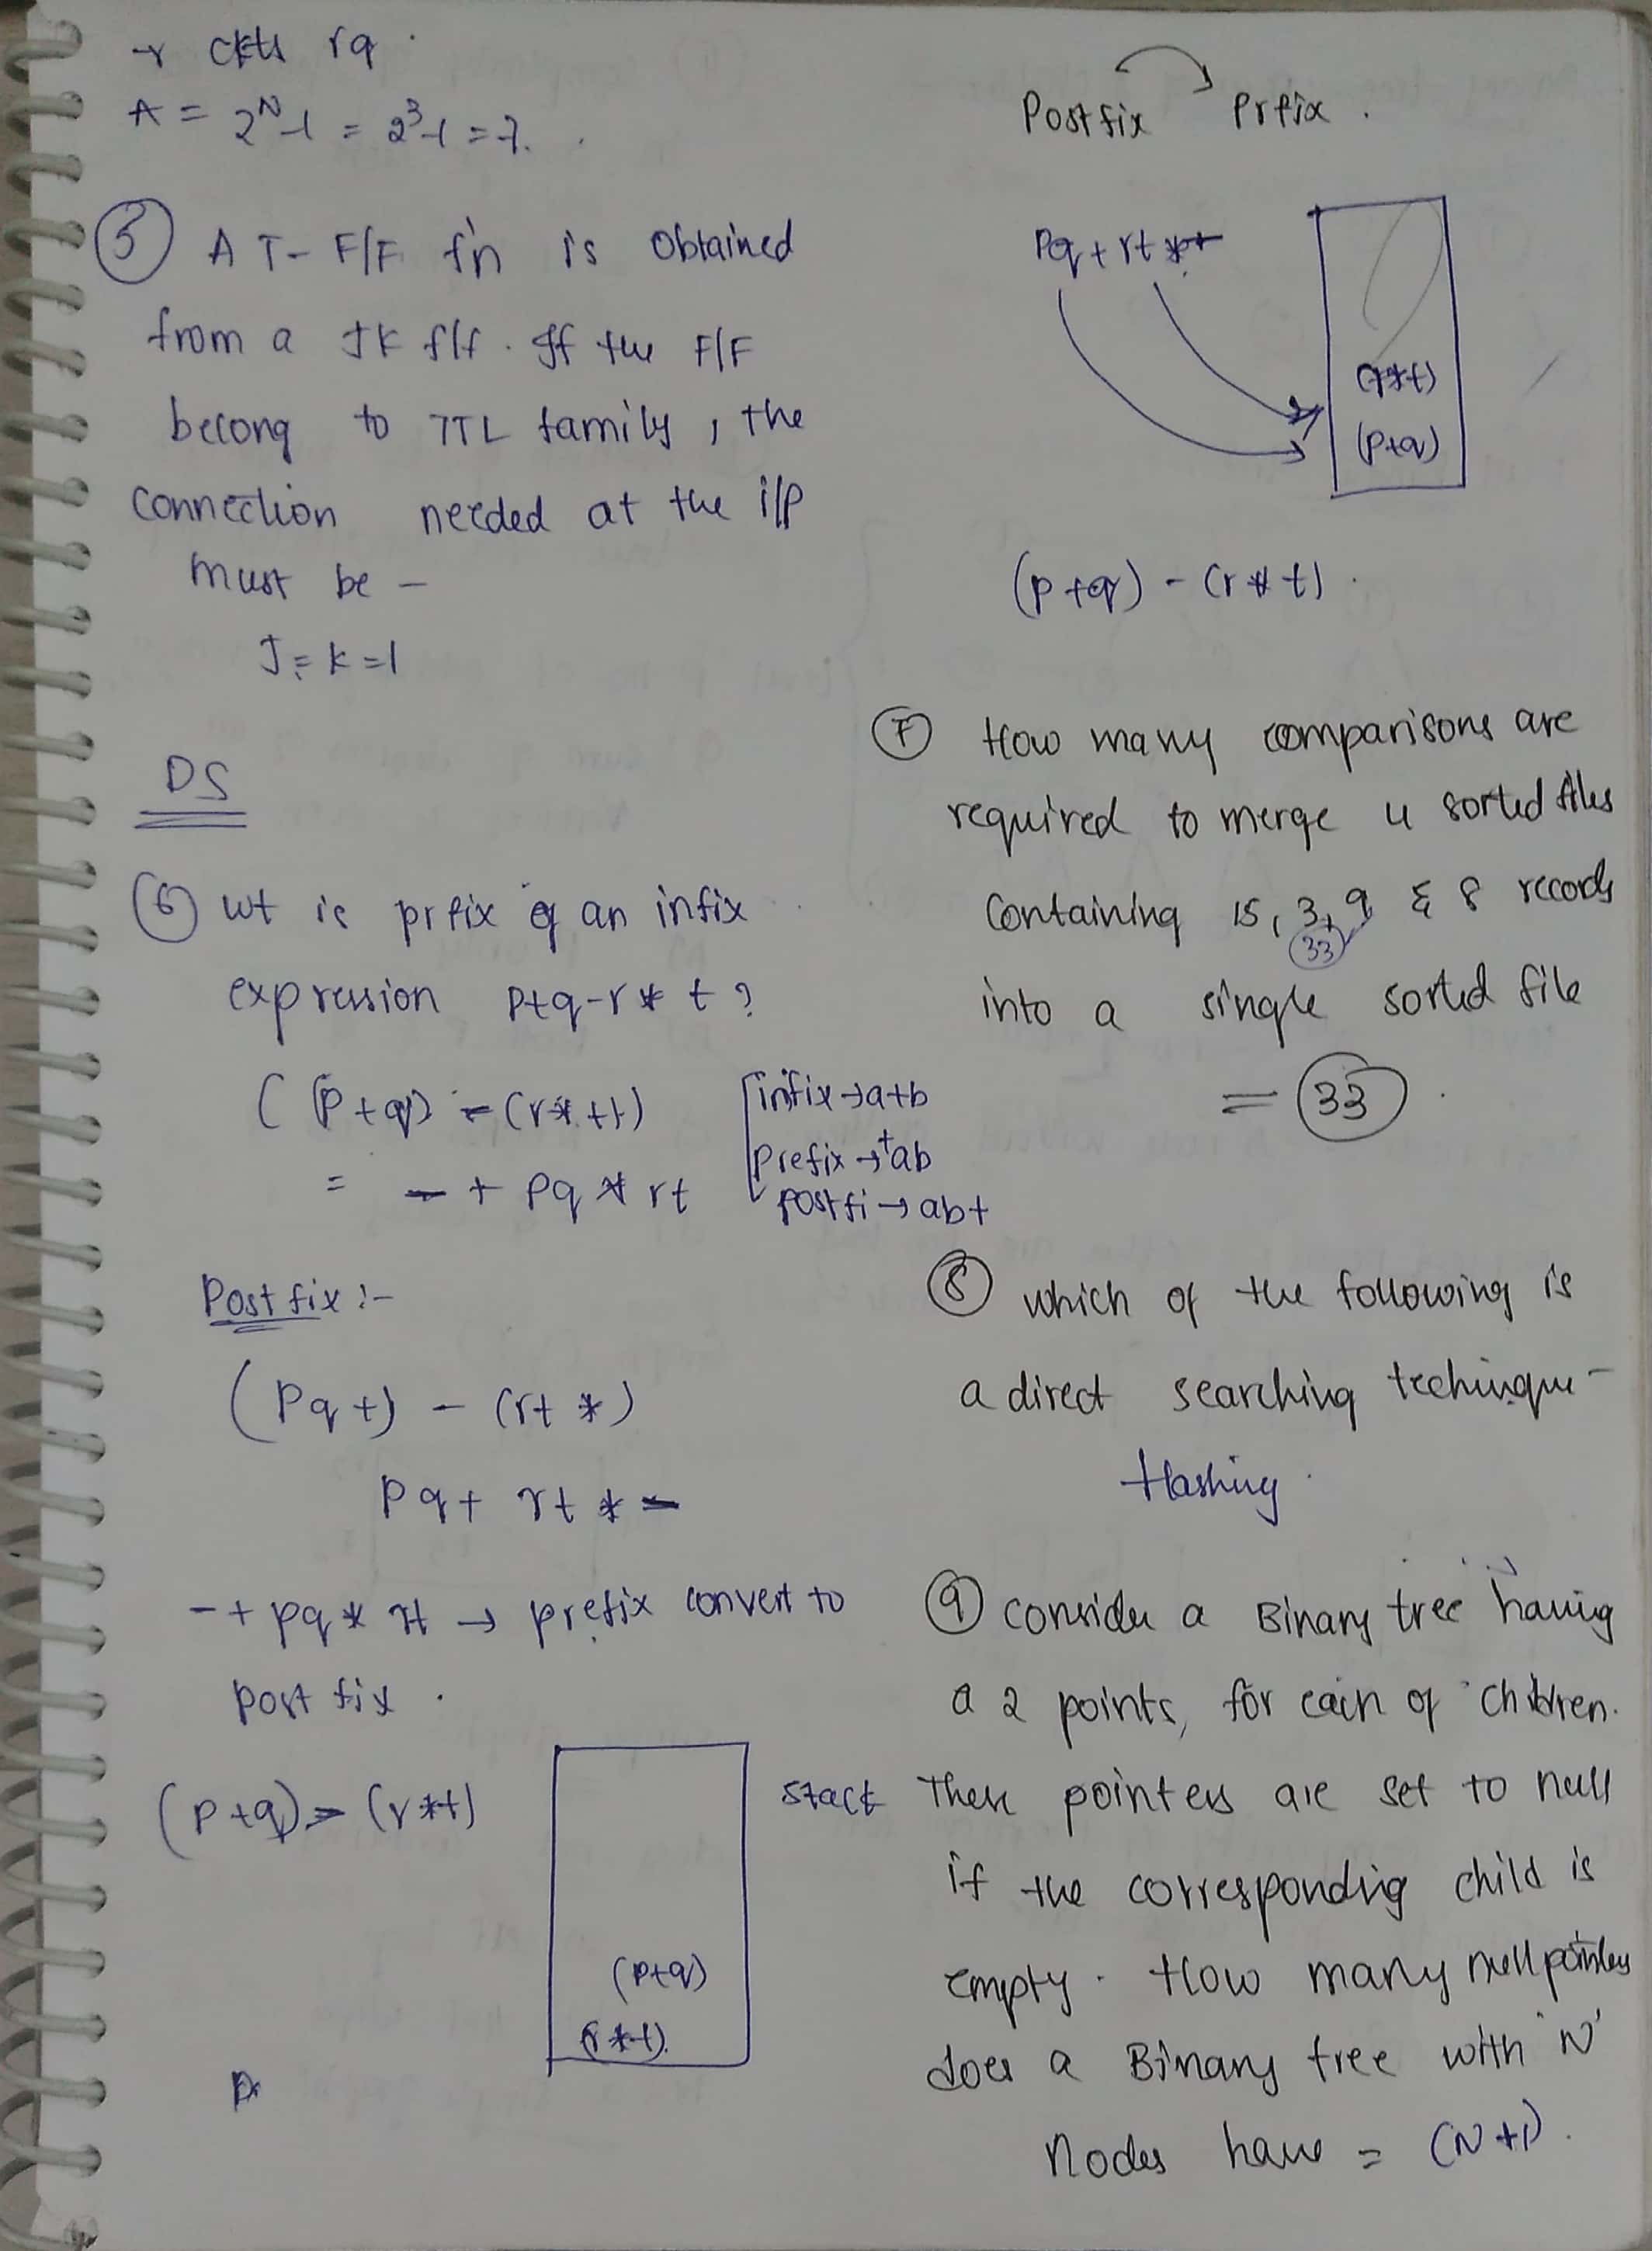 → ckts rq.
A = 2^N-1 = 2^3-1 = 7.
(5) A T- F/F f'n is obtained
from a JK f/f. If the F/F
belong to TTL family, the
connection needed at the i/p
must be -
J = k = 1
DS
(6) wt is prefix of an infix
expression p+q-r*t?
((p+q) - (r*t))
= - + pq * rt
infix → a+b
prefix → +ab
postfi → ab+
Postfix :-
(pq+) - (rt*)
pq+ rt * -
-+pq*rt → prefix convert to
post fix.
(p+q) - (r*t)
stack
(p+q)
(r*t).
Postfix Prefix.
Pq+rt*-
(r*t)
(p+q)
(p+q) - (r*t).
(7) How many comparisons are
required to merge 4 sorted files
containing 15, 3, 9 & 8 records
33
into a single sorted file
= 33.
(8) which of the following is
a direct searching techinque -
Hashing.
(9) consider a Binary tree having
a 2 points, for each of children.
These pointers are set to null
if the corresponding child is
empty. How many null pointers
does a Binary tree with 'N'
Nodes have = (N+1).